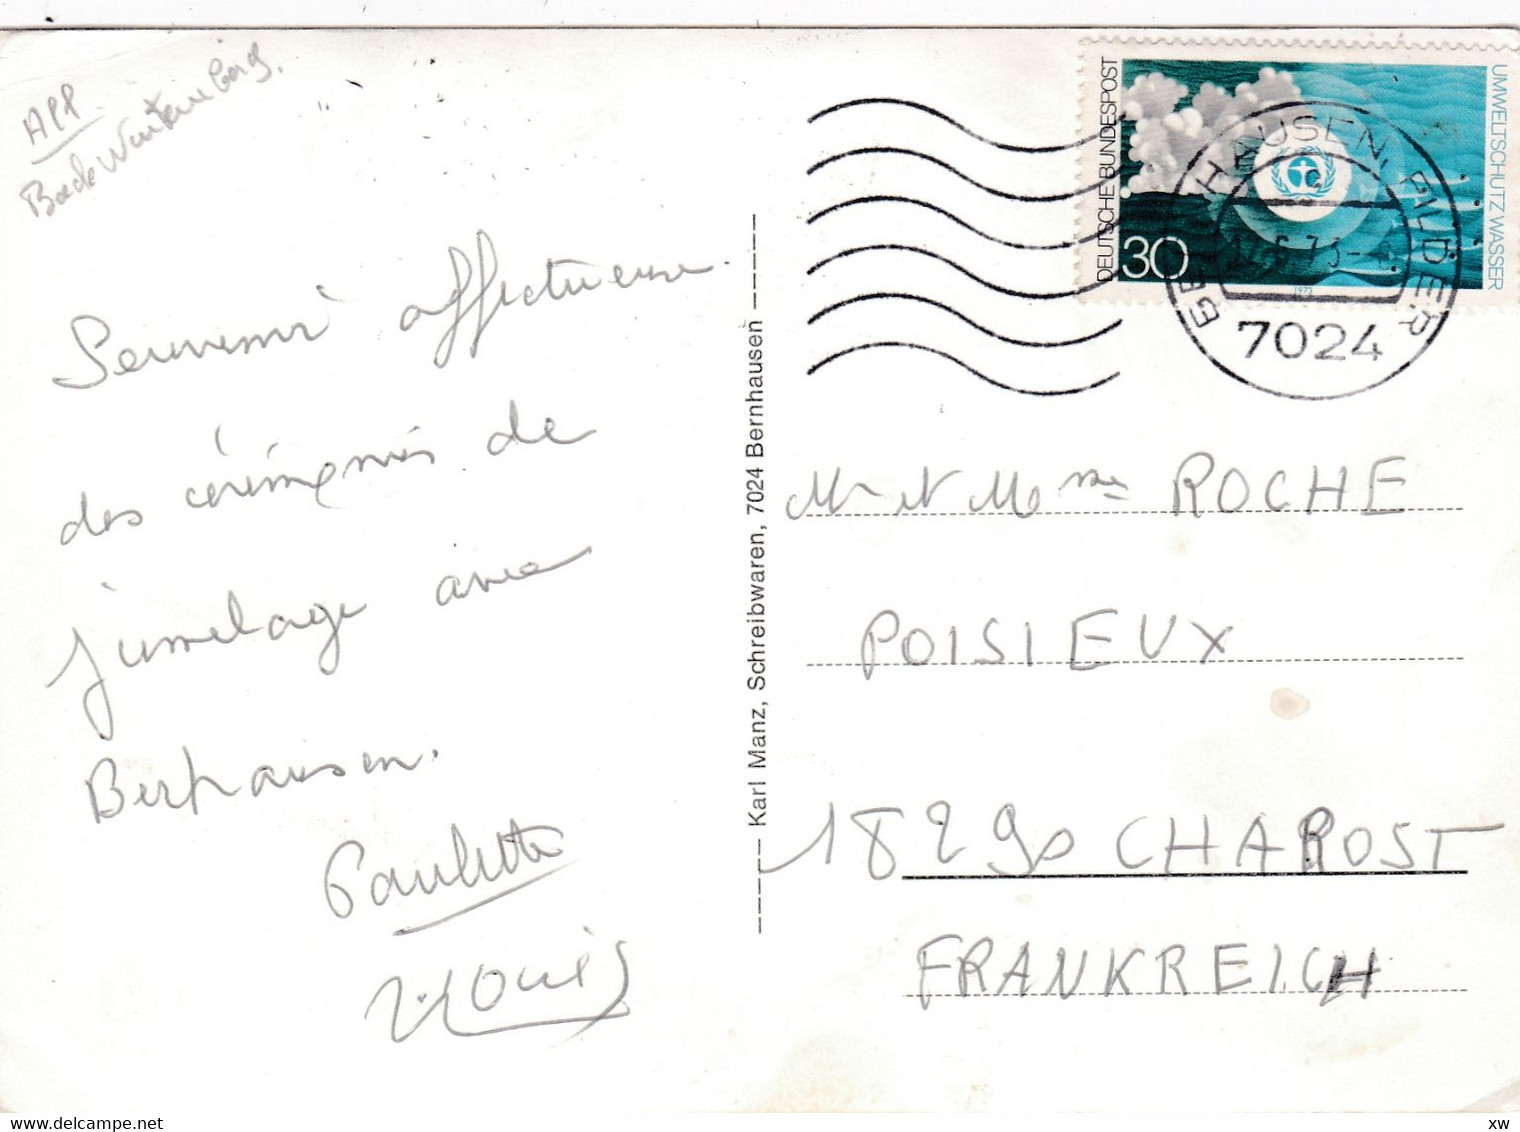 APP
Bade Wurtemberg.
Souvenir affectueux
des cérémonies de
jumelage avec
Bernhausen.
Paulette
Louis
Karl Manz, Schreibwaren, 7024 Bernhausen
DEUTSCHE BUNDESPOST
30
1973
UMWELTSCHUTZ WASSER
BERNHAUSEN, FILDER
c
.6.73-
7024
Mr et Mme ROCHE
POISIEUX
18290 CHAROST
FRANKREICH
delcampe.net
xw